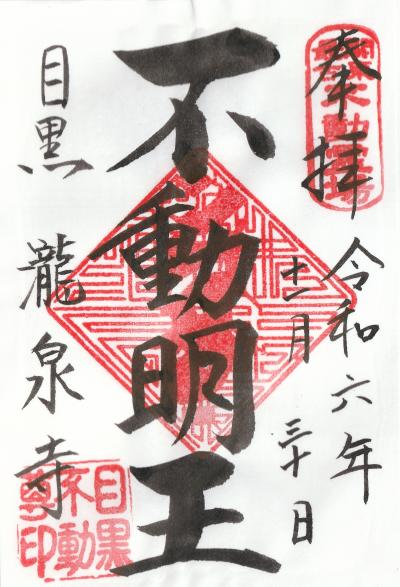 奉拝
令和六年
月
三十日
不動明王
目黒
龍泉寺
目黒
不動
尊印